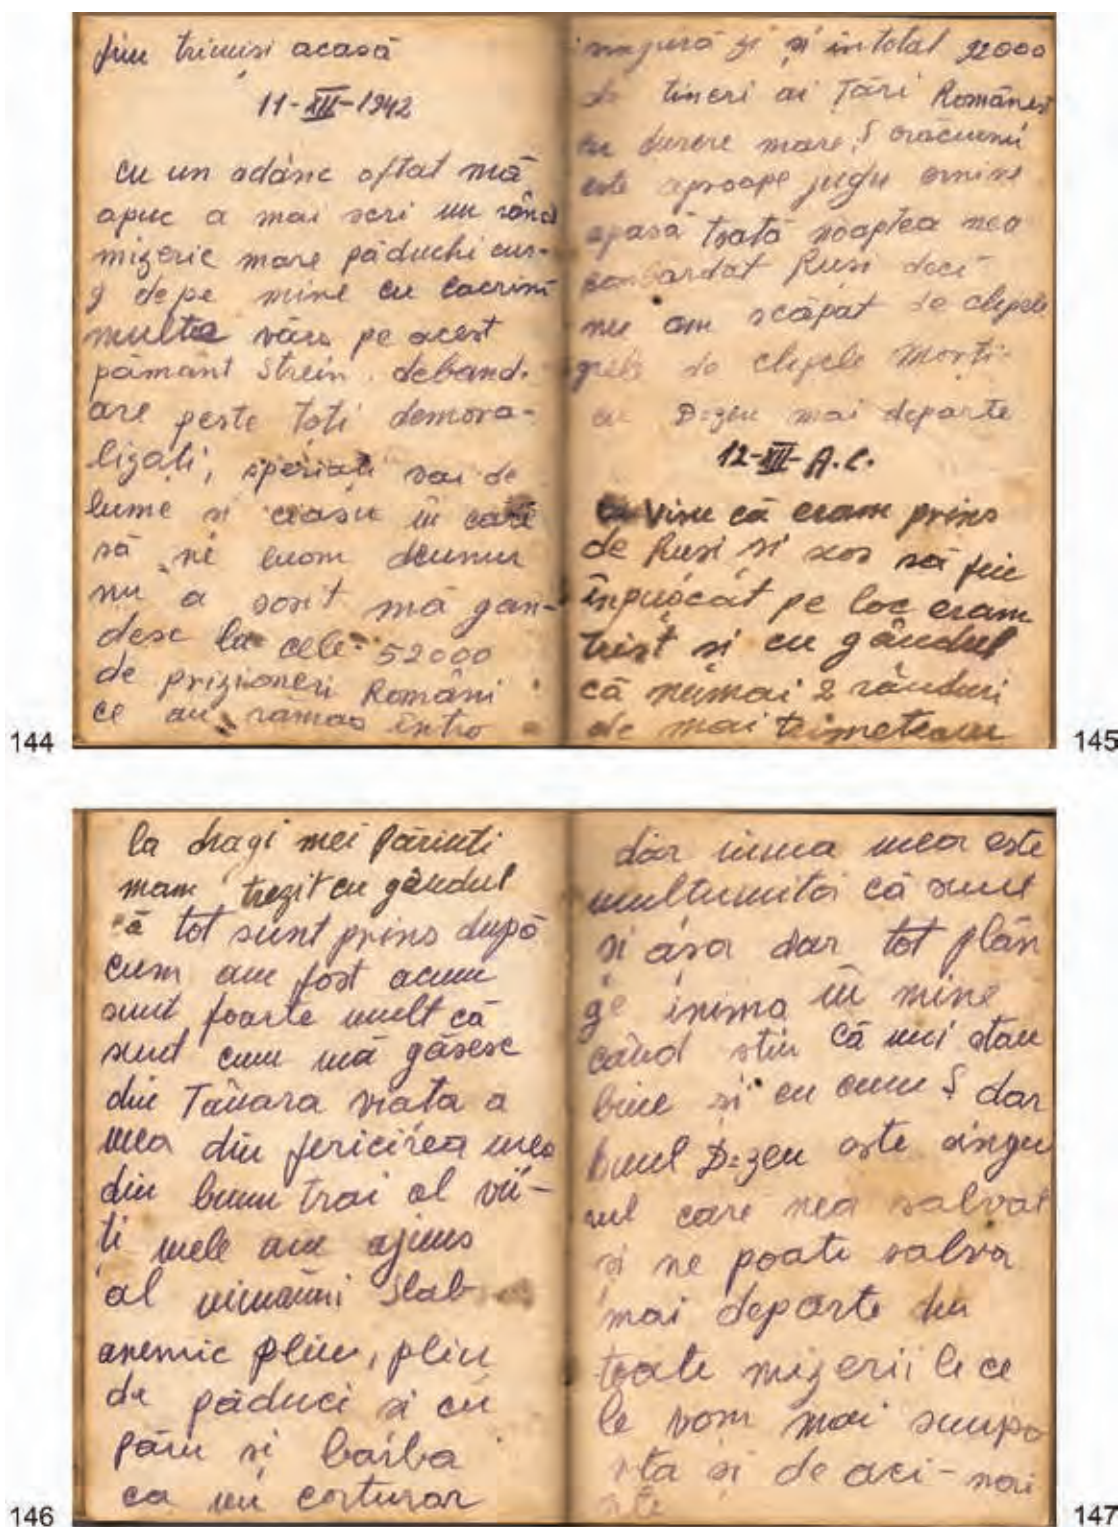 fim trimisi acasă
11-XII-1942
cu un adânc oftat mă
apuc a mai scri un rând
mizerie mare păduchi cur-
g depe mine cu lacrimi
multe vărs pe acest
pământ strein. deband-
are peste toti demora-
lizați, speriati vai de
lume si ceasu în care
să ne luom drumur
nu a sosit mă gan-
desc la cele 52000
de prizioneri Români
ce au ramas întro
singură zi și in total 92000
de tineri ai Țări Românes
cu durere mare, crăciunu
este aproape jugu
apasă toată noaptea nea
bardat Rusi deci
nu am scăpat de clipele
grele de clipele Morți-
cu D-zeu mai departe
12-XII-A.C.
Visu că eram prins
de Rusi si scos să fiu
înpușcat pe loc eram
trist si cu gândul
că numai 2 rânduri
de mai trimeteam
144
145
la dragi mei Părinti
mam trezit cu gândul
că tot sunt prins după
cum am fost acum
sunt foarte mult că
sunt cum mă găsesc
din Tânara viata a
mea din fericirea mea
din bunu trai al vii-
ti mele am ajuns
al nimănui slab
anemic plin, plin
de păduci si cu
păru si barba
ca un corturar
dar inima mea este
multumita că sunt
si asa dar tot plân
ge inima în mine
când stiu că uni stau
bine si eu cum dar
bunul D-zeu este singu
rul care nea salvat
si ne poate salva
mai departe din
toate mizeriile ce
le vom mai supo
rta si de aci-nai
nte
146
147